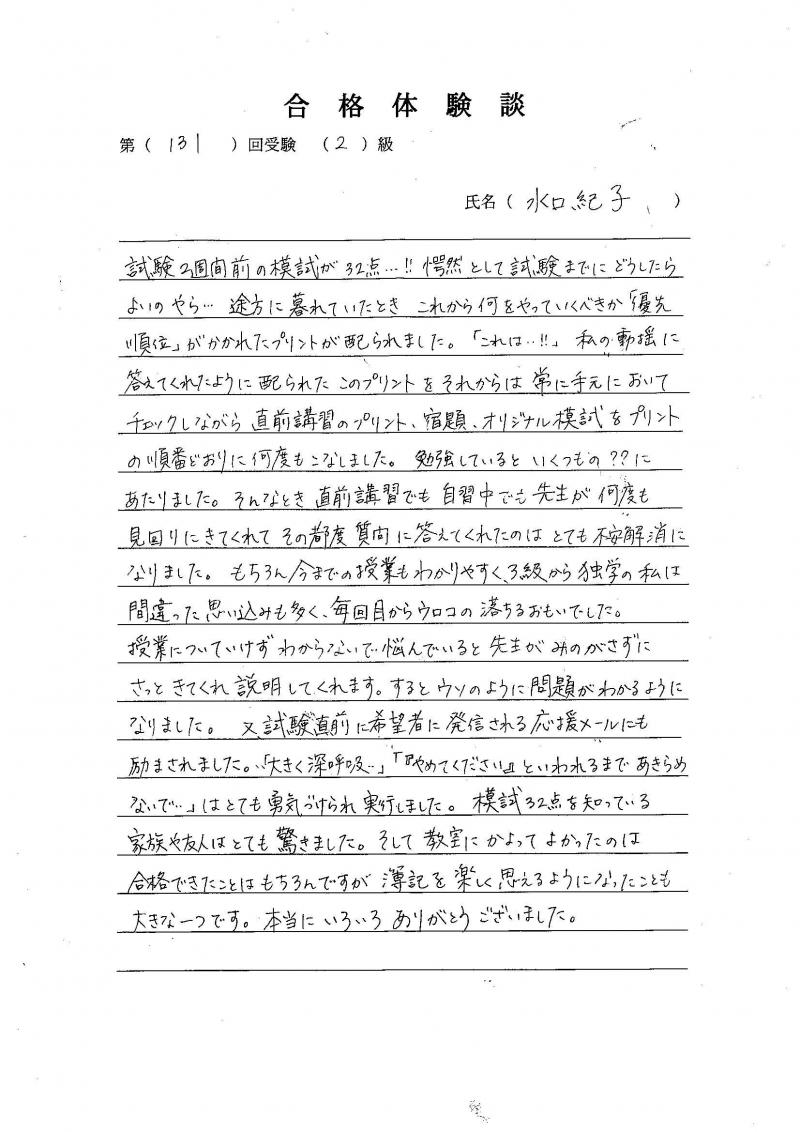 合格体験談
第（131）回受験 （2）級
氏名（水口紀子）
試験2週間前の模試が32点…!! 愕然として試験までにどうしたら
よいのやら… 途方に暮れていたとき これから何をやっていくべきか「優先
順位」がかかれたプリントが配られました。「これは…!!」 私の動揺に
答えてくれたように配られた このプリントを それからは 常に手元において
チェックしながら 直前講習のプリント、宿題、オリジナル模試をプリント
の順番どおりに何度もこなしました。 勉強していると いくつもの??に
あたりました。そんなとき 直前講習でも 自習中でも 先生が 何度も
見回りにきてくれて その都度 質問に答えてくれたのは とても不安解消に
なりました。 もちろん今までの授業もわかりやすく、3級から独学の私は
間違った思い込みも多く、毎回目からウロコの落ちるおもいでした。
授業についていけず わからないで悩んでいると 先生が みのがさずに
さっと きてくれ 説明してくれます。すると ウソのように問題がわかるように
なりました。 又 試験直前に希望者に発信される応援メールにも
励まされました。「大きく深呼吸…」「『やめてください』といわれるまであきらめ
ないで…」はとても勇気づけられ実行しました。 模試32点を知っている
家族や友人はとても驚きました。そして 教室にかよって よかったのは
合格できたことはもちろんですが 簿記を楽しく思えるようになったことも
大きな一つです。本当に いろいろ ありがとう ございました。